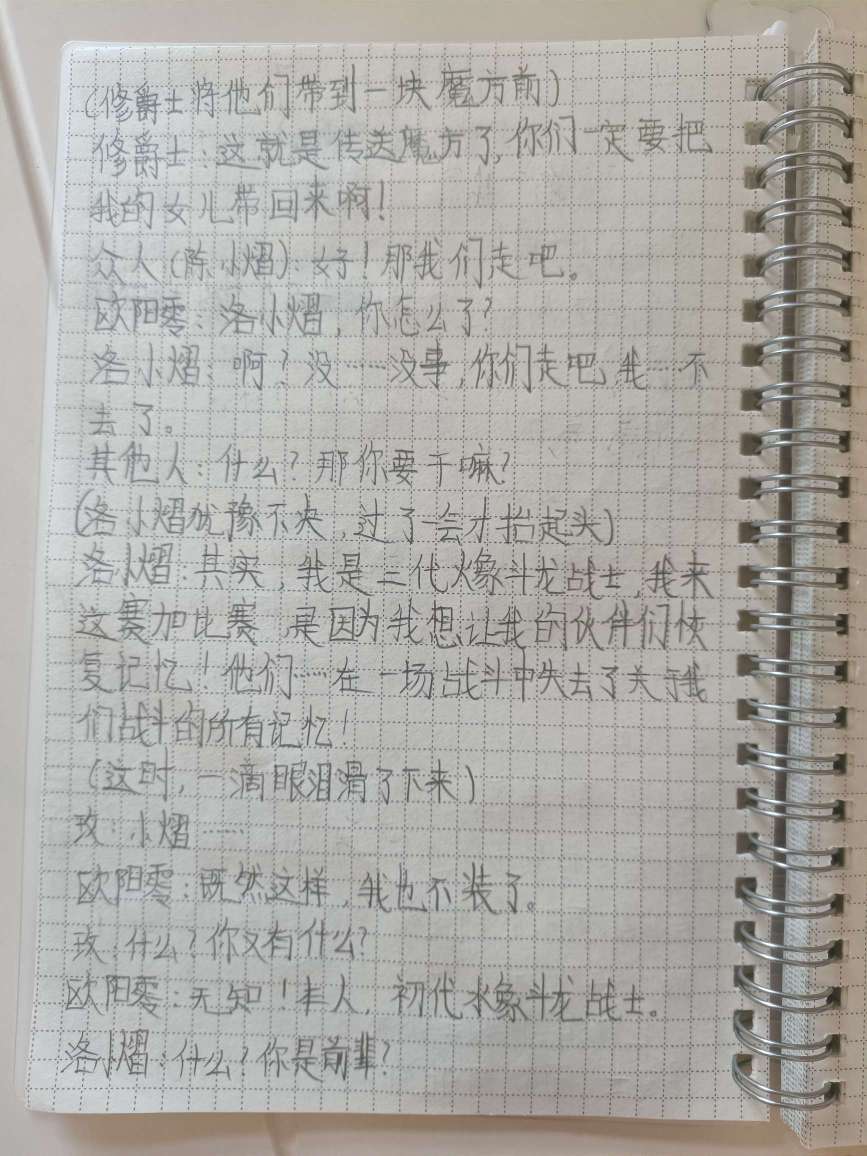 (修爵士将他们带到一块魔方前)
修爵士:这就是传送魔方了,你们一定要把
我的女儿带回来啊!
众人(陈小熠):好!那我们走吧。
欧阳零:洛小熠,你怎么了?
洛小熠:啊?没……没事,你们走吧,我…不
去了。
其他人:什么?那你要干嘛?
(洛小熠犹豫不决,过了一会才抬起头)
洛小熠:其实,我是二代火象斗龙战士,我来
这赛加比赛,是因为我想让我的伙伴们恢
复记忆!他们……在一场战斗中失去了关于我
们战斗的所有记忆!
(这时,一滴眼泪滑了下来)
玫:小熠……
欧阳零:既然这样,我也不装了。
玫:什么?你又有什么?
欧阳零:无知!本人,初代水象斗龙战士。
洛小熠:什么?你是前辈?